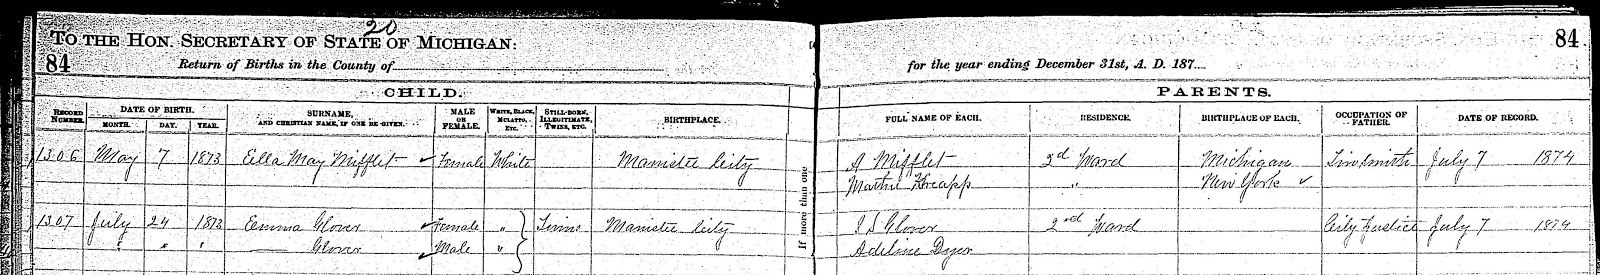 20
TO THE HON. SECRETARY OF STATE OF MICHIGAN:
84 Return of Births in the County of for the year ending December 31st, A. D. 187 84
CHILD. PARENTS.
RECORD NUMBER. DATE OF BIRTH. MONTH. DAY. YEAR. SURNAME, AND CHRISTIAN NAME, IF ONE BE GIVEN. MALE OR FEMALE. WHITE, BLACK, MULATTO, ETC. STILL-BORN, ILLEGITIMATE, TWINS, ETC. BIRTHPLACE. FULL NAME OF EACH. RESIDENCE. BIRTHPLACE OF EACH. OCCUPATION OF FATHER. DATE OF RECORD.
1306 May 7 1873 Ella May Mifflet ✓ Female White Manistee City A Mifflet 3rd Ward Michigan Tinsmith July 7 1874
" New York ✓
1307 July 24 1873 Emma Glover ✓ Female " } Twins Manistee City Glover 2nd Ward City Justice July 7 1874
" " " Glover ✓ Male " Adeline Dyer
If more than one